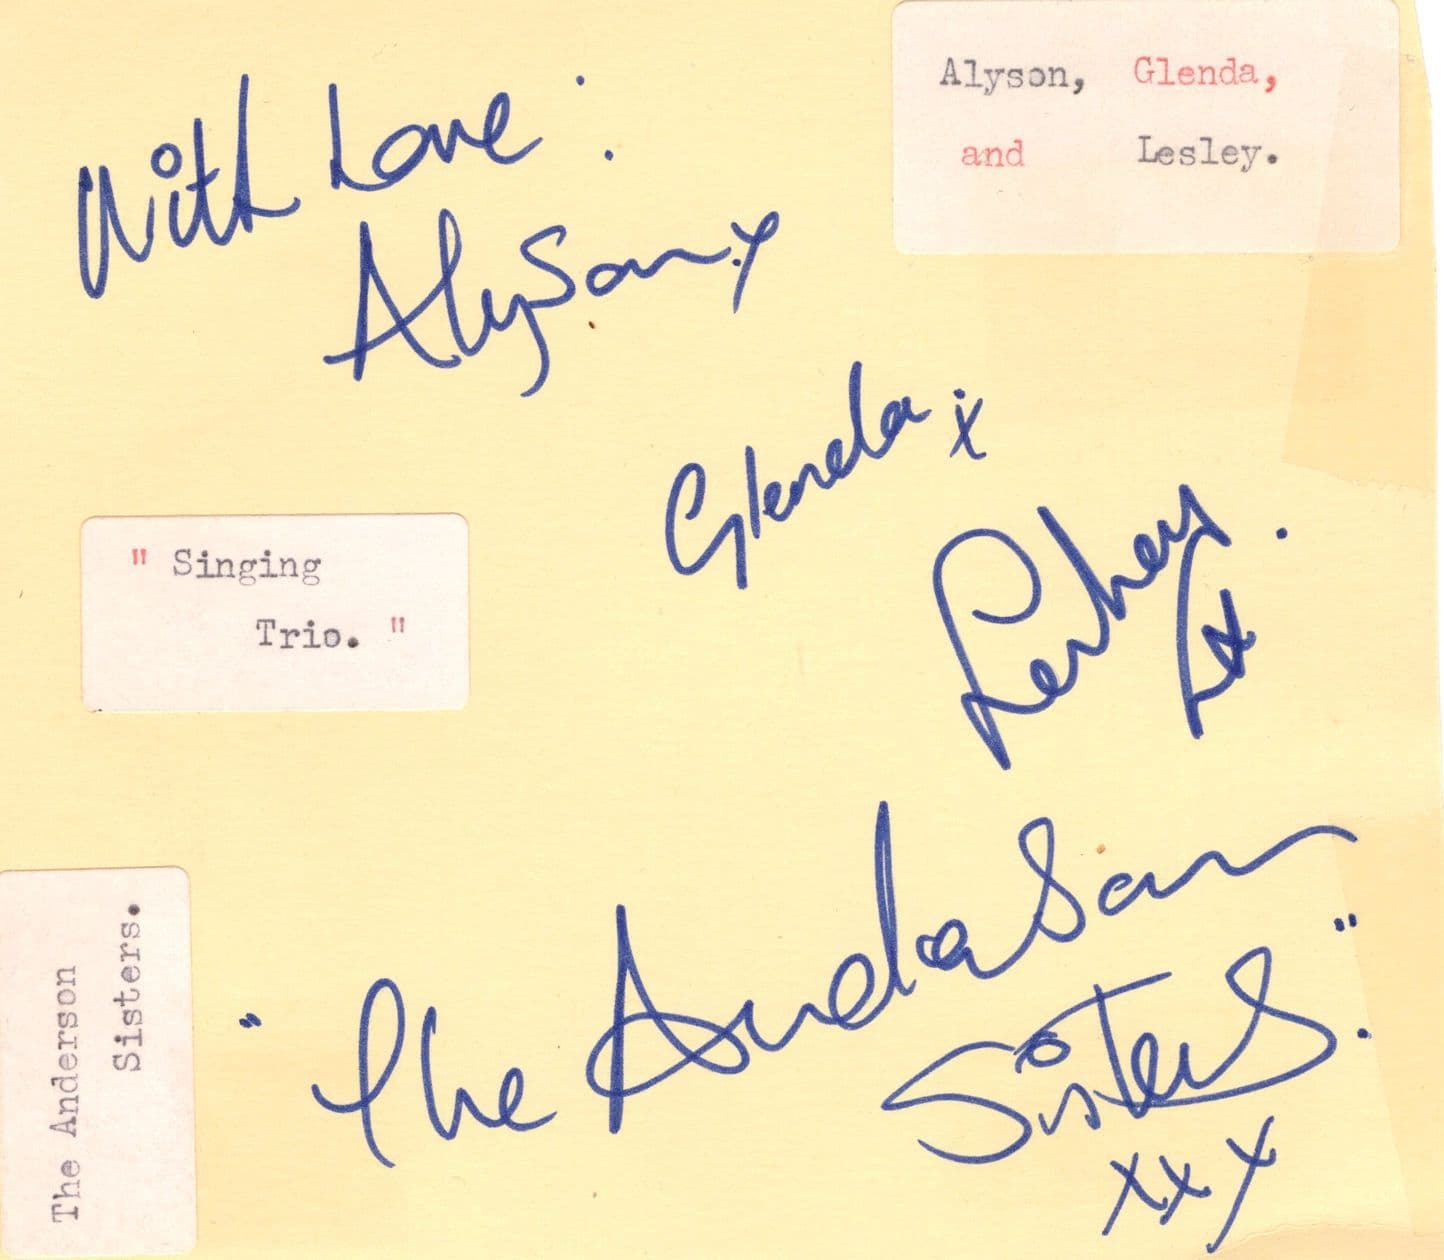 Alyson, Glenda,
and Lesley.
With Love :
Alyson x
Glenda x
Lesley. x
" Singing
Trio. "
The Anderson
Sisters.
"The Anderson
Sisters."
xxx